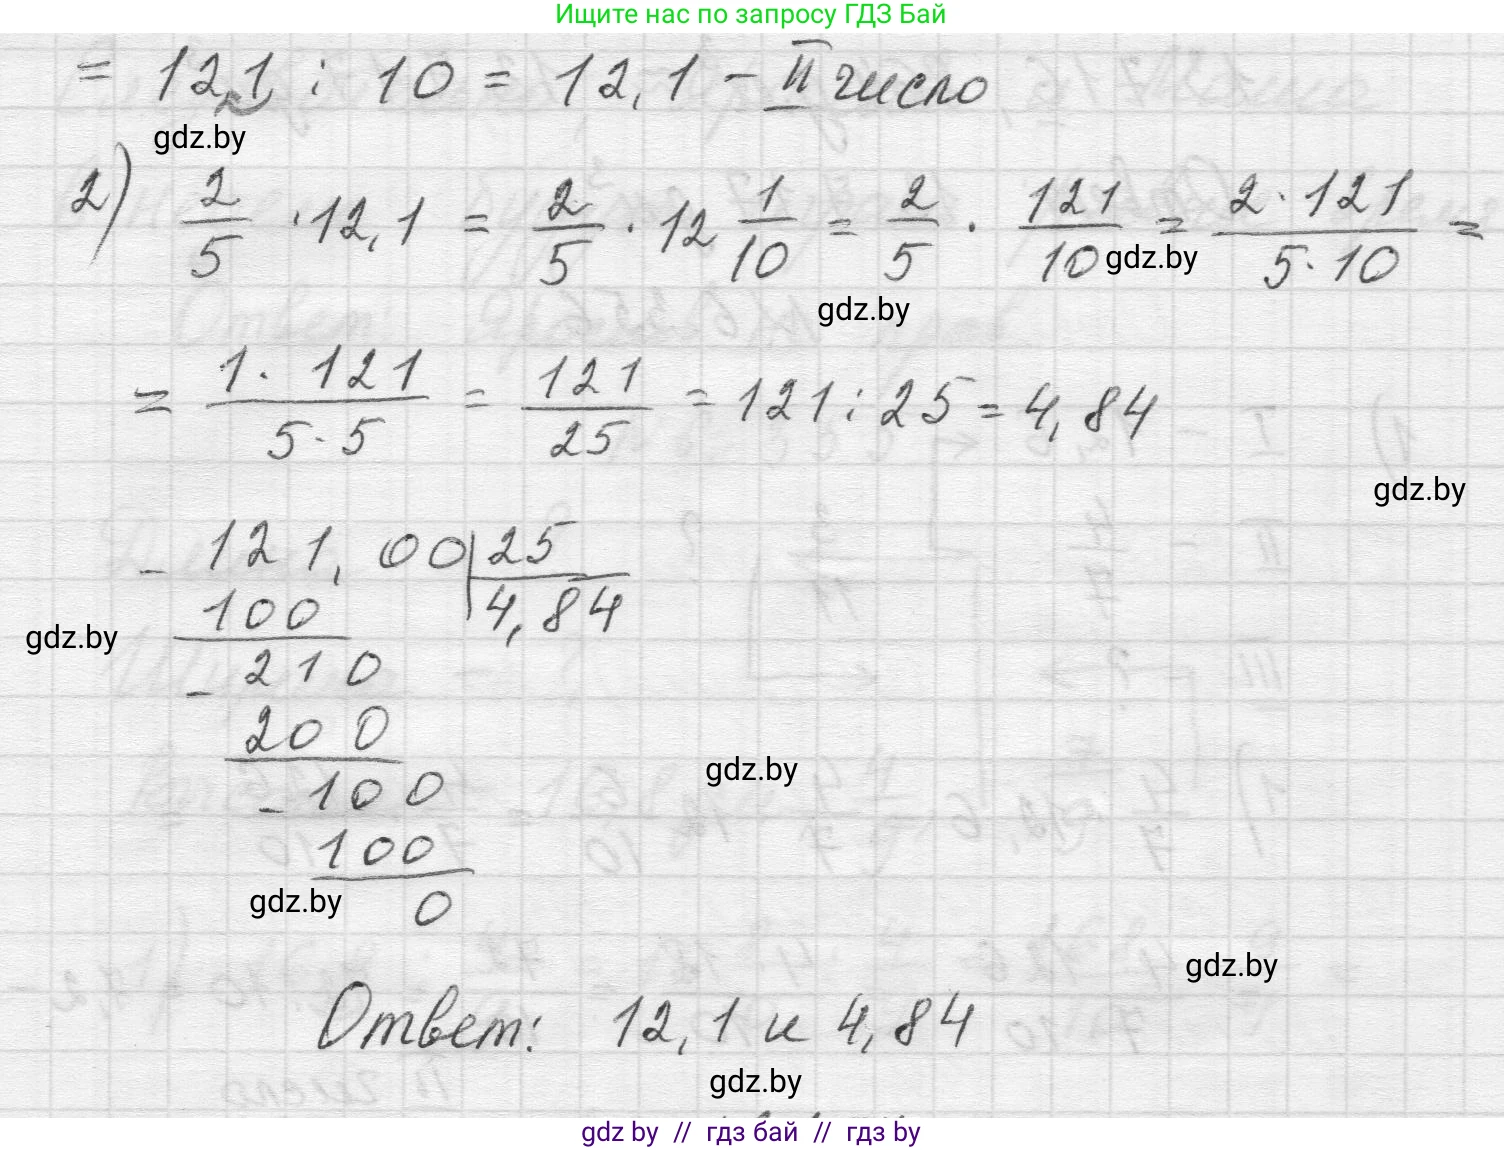 Ищите нас по запросу ГДЗ Бай
= 12,1 : 10 = 12,1 – II число
gdz.by
2) 2/5 · 12,1 = 2/5 · 12 1/10 = 2/5 · 121/10 = 2 · 121 / 5 · 10 =
gdz.by
gdz.by
= 1 · 121 / 5 · 5 = 121/25 = 121 : 25 = 4,84
gdz.by
- 121,00 | 25
100 4,84
gdz.by
- 210
200
gdz.by
- 100
100
gdz.by
0
gdz.by
Ответ: 12,1 и 4,84
gdz.by
gdz by // гдз бай // гдз by